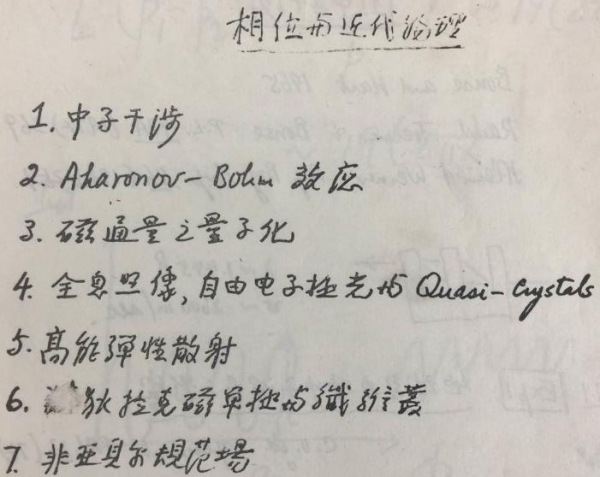 相位与近代物理
1. 中子干涉
2. Aharonov-Bohm 效应
3. 磁通量之量子化
4. 全息照像,自由电子激光与 Quasi-Crystals
5. 高能弹性散射
6. 狄拉克磁单极与纖維叢
7. 非亚贝尔规范場